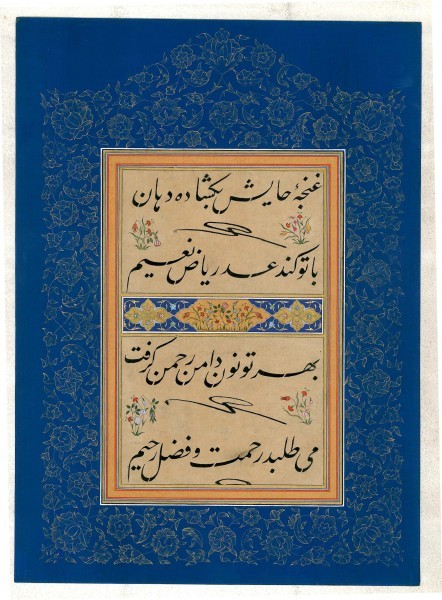 غنچهٔ حایش بگشاده دهان
با تو کند عد ریاض نعیم
بهر تو نون دامن رحمن گرفت
می طلبد رحمت و فضل رحیم